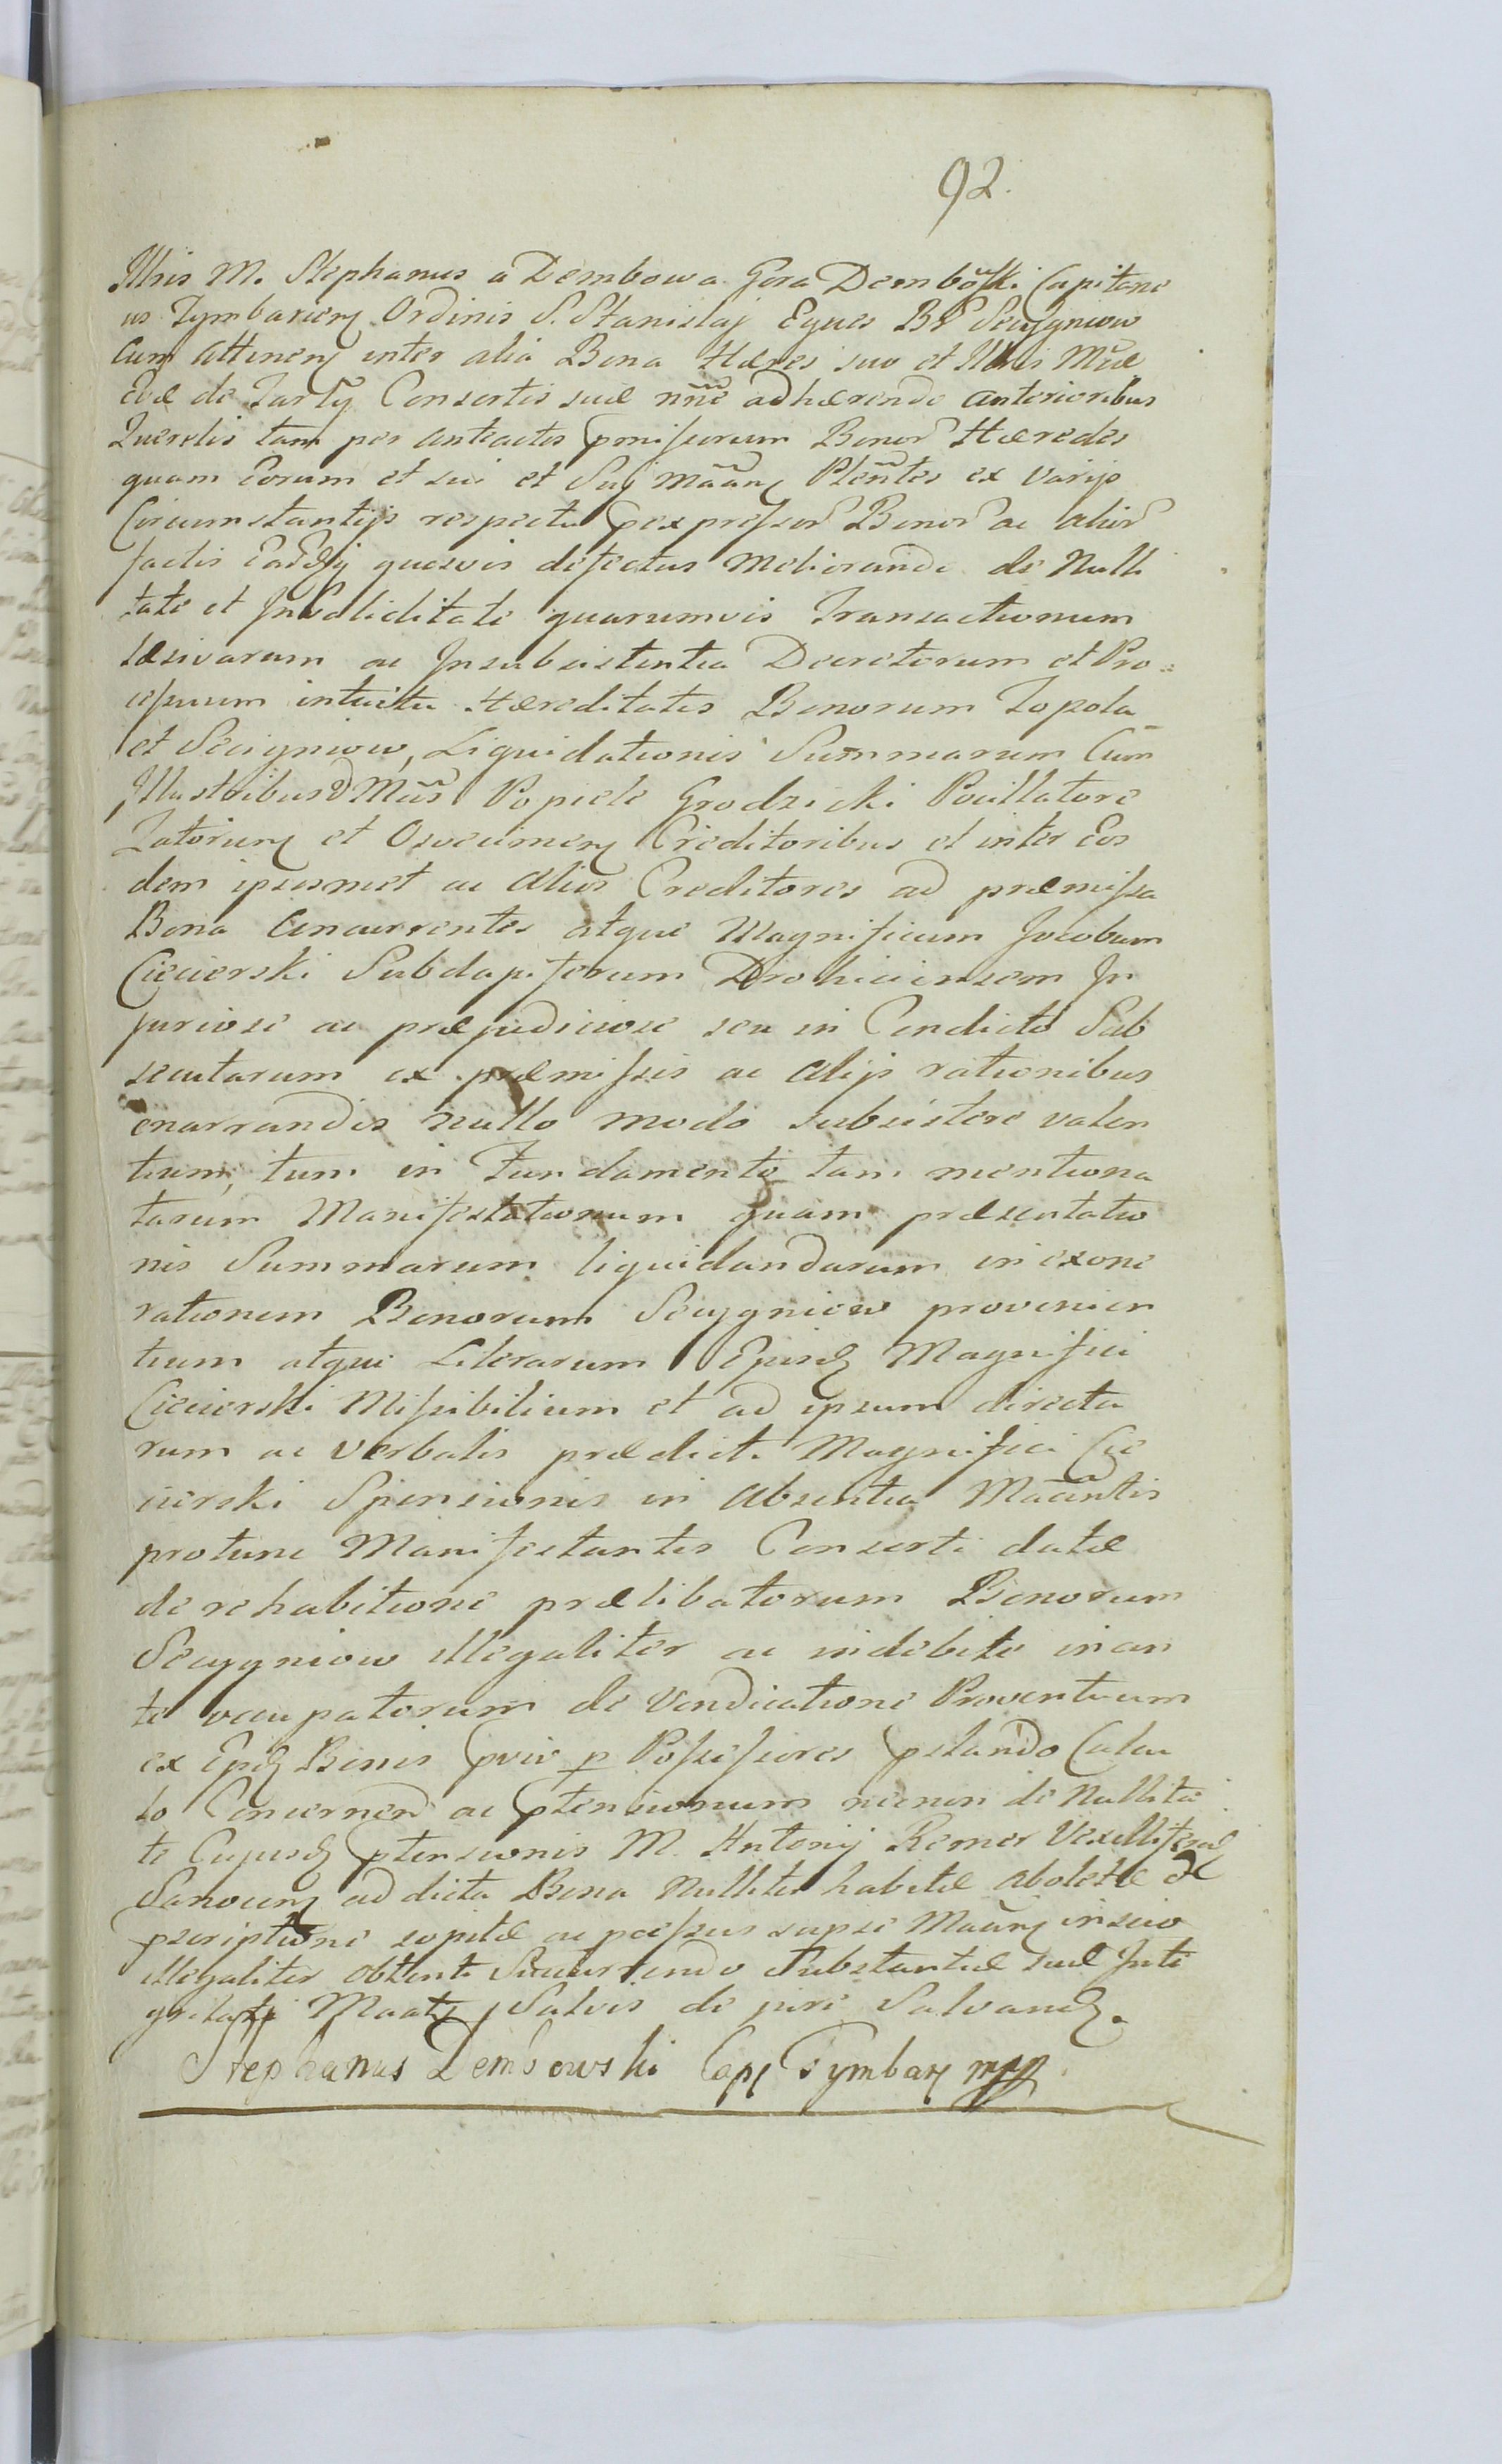 92.
Illris M. Stephanus a Dembowa Gora Dembowski Capitane
us Tymbarien Ordinis S. Stanislaj Eques BB Scigniow
cum Attinen inter alia Bona Hæres suo et Illris Mcæ
Evæ de Tarły Consortis suæ nne adhærendo anterioribus
Querelis tam per anteactos pmissorum Bonor Hæredes
quam Eorum et sui et Suj Maan Plentes ex varijs
Circumstantijs respectu pexpressor Bonor ac alior
factis quosvis defectus Meliorando de Nulli
tate et Invaliditate quarumvis Transactionum
læsivarum ac Insubsistentia Decretorum et Pro=
cessuum intuitu Hæreditatis Bonorum Topola
et Sciigniow, Liquidationis Summarum Cum
Illustribus Mcis Popiele Grodzicki Pocillatore
Zatorien et Osvecimen Creditoribus et inter Eos
dem ipsosmet ac Alios Creditores ad præmissa
Bona Concurrentes atque Magnificum Jacobum
Ciecierski Subdapiferum Drohiciensem In
juriose ac præjudiciose seu in Condicto Sub
secutarum ex præmissis ac Alijs rationibus
enarrandis nullo modo subsistere valen
tium, tum in Fundamento tam mentiona
tarum Manifestationum quam præsentatio
nis Summarum liquidandarum in exone
rationem Bonorum Sciygniow provenien
tium atque Literarum Ejusd Magnifici
Ciecierski Missibilium et ad ipsum directa
rum ac verbalis prædicti Magnifici Cie
cierski Sponsionis in absentia Maantis
protunc Manifestantis Consorti datæ
de rehabitione prælibatorum Bonorum
Sciygniow illegaliter ac indebite inan
te occupatorum de Vendicatione Proventuum
ex Bonis p Possessores Calcu
lo Concernen ac ptensionum necnon de Nullita
te Cujusd ptensionis M. Antonij Romer Vexilliferi
Sanocen ad dicta Bona Nulliter habitæ abolitæ &
pscriptione sopitæ ac passus supse Maan inscio
illegaliter obtenti Succurrendo Substantiæ suæ Inte
gritati Maat Salvis de jure Salvand.
Stephanus Dembowski Cap Tymbar mpp